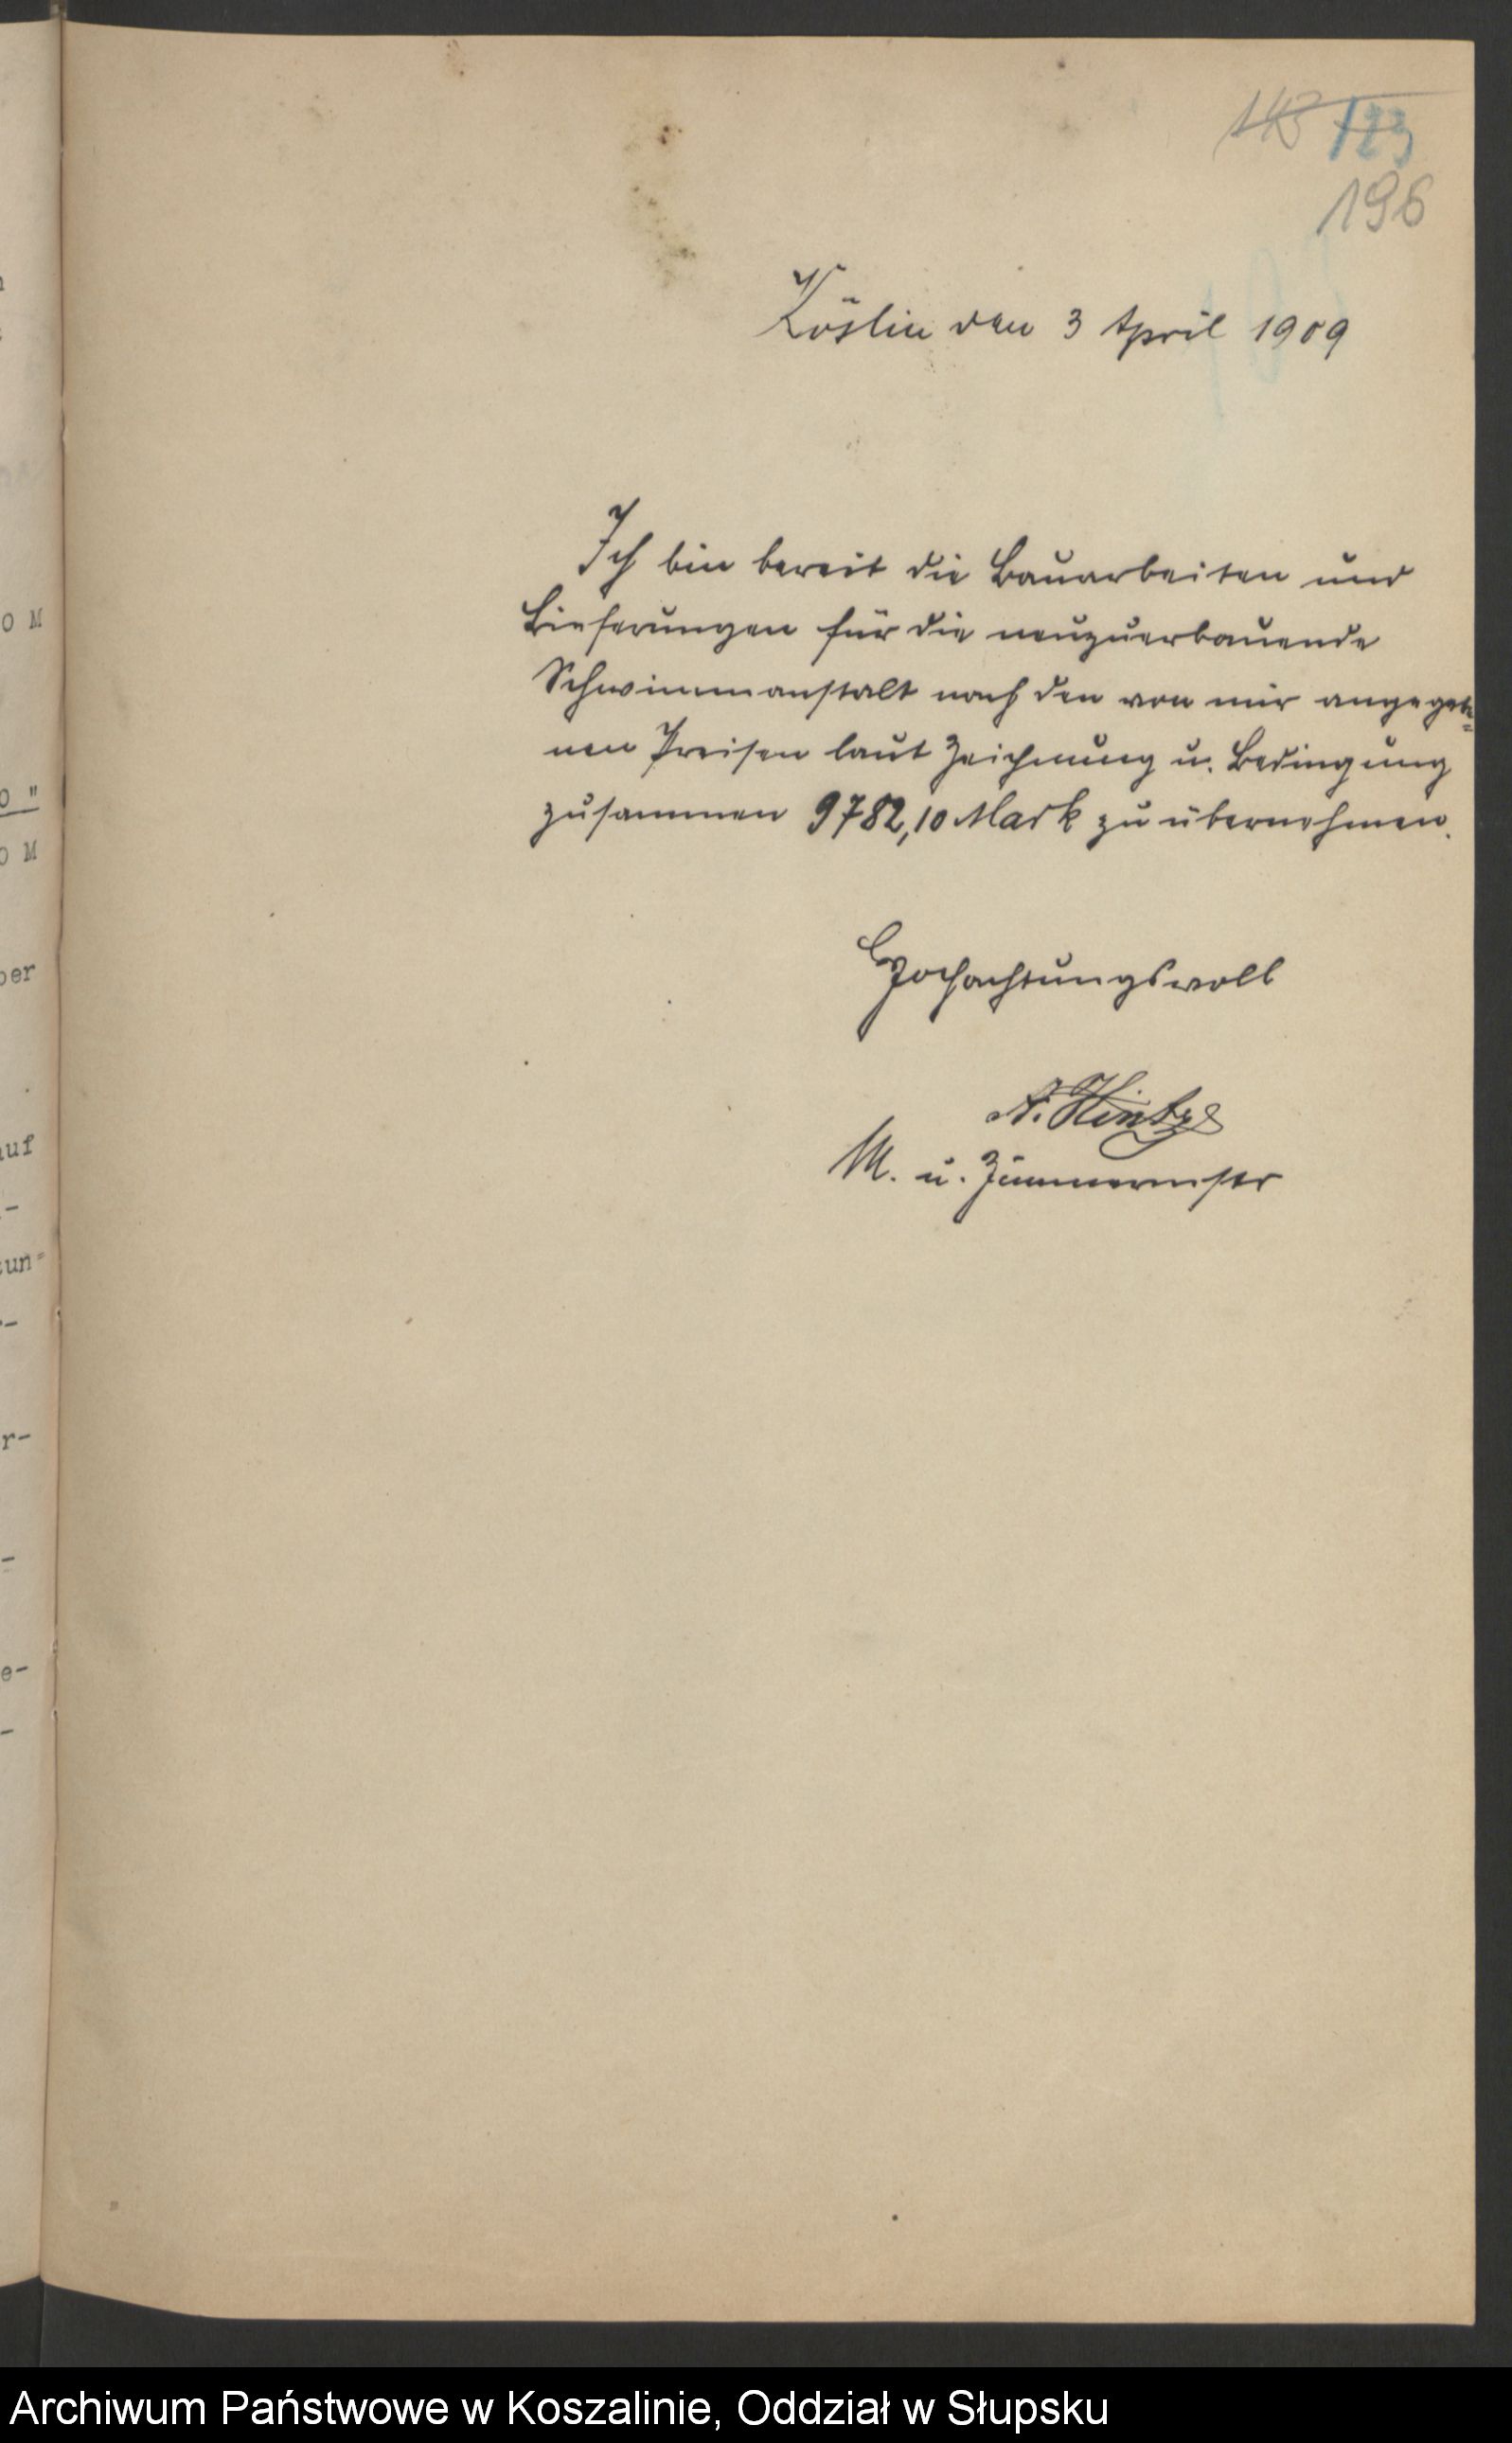 123
196
Köslin den 3 April 1909
Ich bin bereit die Bauarbeiten und
Lieferungen für die neuzuerbauende
Schwimmanstalt nach den von mir angegebe=
nen Preisen laut Zeichnung u. Bedingung
zusammen 9782,10 Mark zu übernehmen.
Hochachtungsvoll
A. Hintze
M. u. Zimmermstr
o M
o "
o M
ber
auf
-
tun=
-
r-
-
e-
-
Archiwum Państwowe w Koszalinie, Oddział w Słupsku